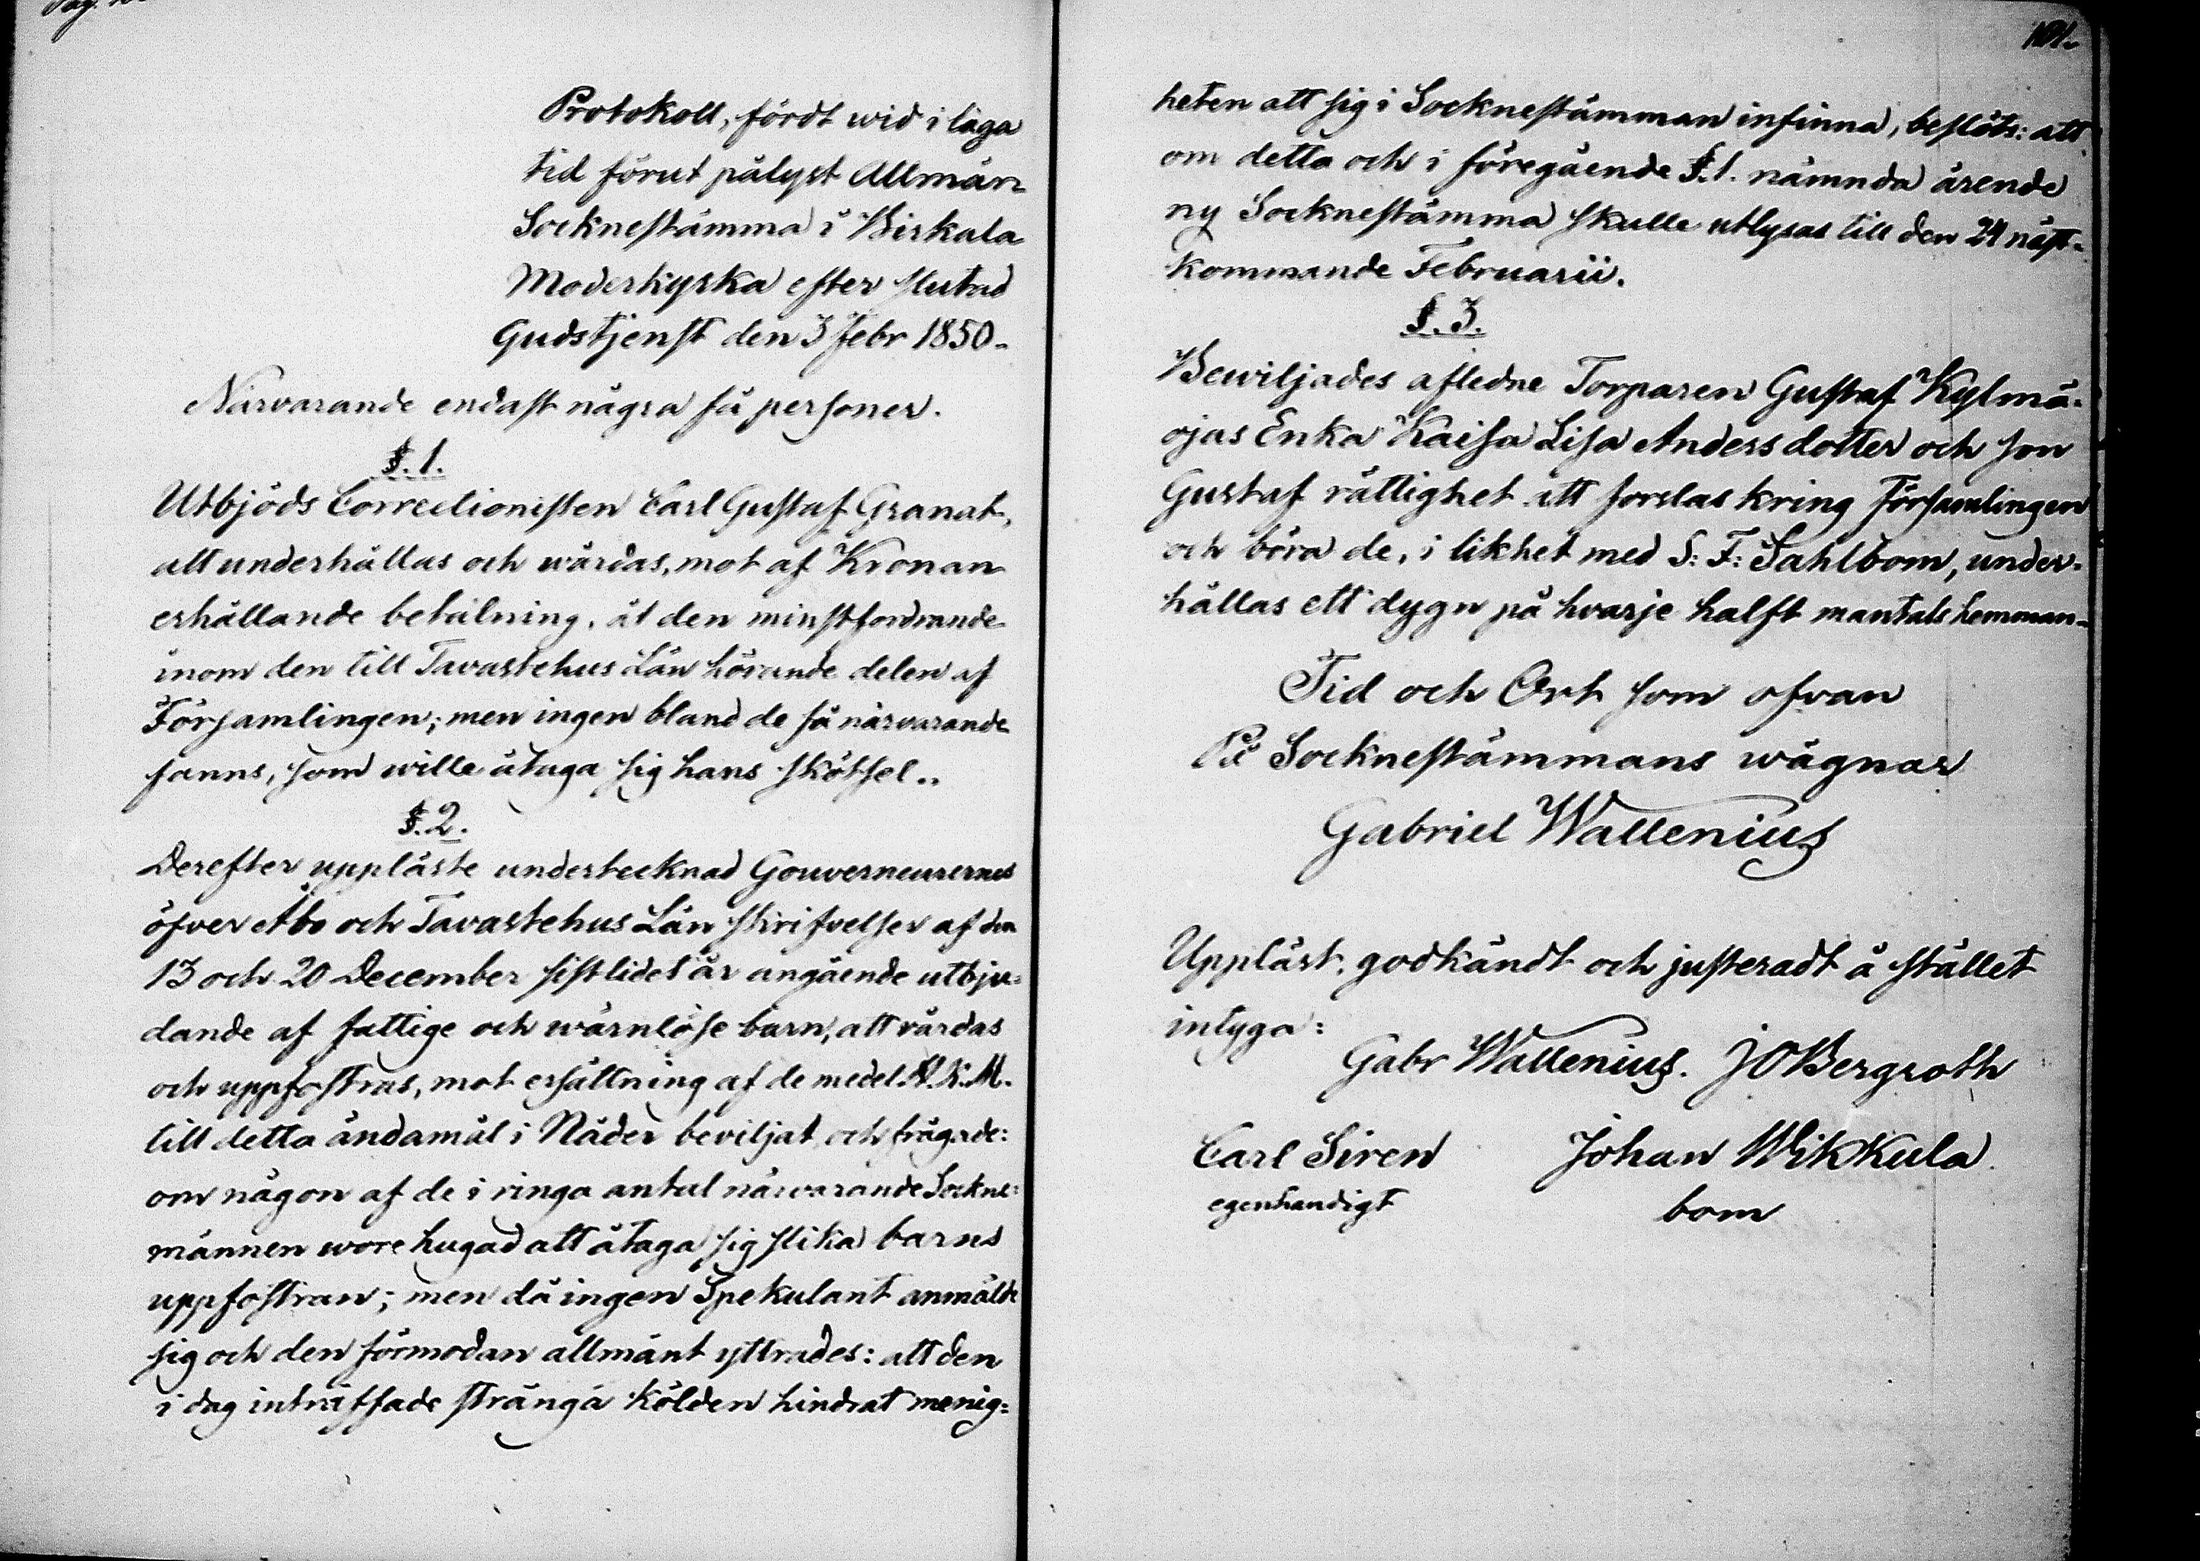 Pag.
Protokoll, fördt wid i laga
tid förut pålyst Allmän
Socknestämma i Birkala
Moderkyrka efter slutad
Gudstjenst den 3 Febr 1850.
Närvarande endast några få personer.
§. 1.
Utbjöds Correctionisten Carl Gustaf Granat,
att underhållas och wårdas, mot af Kronan
erhållande betalning, åt den minstfordrande
inom den till Tavastehus Län hörande delen af
Församlingen; men ingen bland de få närvarande
fanns, som wille åtaga sig hans skötsel..
§. 2.
Derefter uppläste undertecknad Gouverneurernes
öfver Åbo och Tavastehus Län skrifvelser af den
13 och 20 December sistlidet år angående utbju=
dande af fattige och wärnlöse barn, att vårdas
och uppfostras, mot ersättning af de medel H. K. M.
till detta ändamål i Nåder beviljat, och frågade:
om någon af de i ringa antal närvarande Sockne=
männen wore hugad att åtaga sig slika barns
uppfostran; men då ingen Spekulant anmälde
sig och den förmodan allmänt yttrades: att den
i dag inträffade stränga kölden hindrat menig=
101.
heten att sig i Socknestämman infinna, beslöts: att
om detta och i föregående §. 1. nämnda ärende
ny Socknestämma skulle utlysas till den 24 näst=
kommande Februarii.
§. 3.
Bewiljades afledne Torparen Gustaf Kylmä=
ojas Enka Kaisa Lisa Andersdotter och son
Gustaf rättighet att forslas kring Församlingen
och böra de, i likhet med S: F: Sahlbom, under=
hållas ett dygn på hvarje halft mantals hemman.
Tid och Ort som ofvan
På Socknestämmans wägnar
Gabriel Wallenius
Uppläst, godkändt och justeradt å stället
intyga:
Gabr Wallenius. J O Bergroth
Carl Siren Johan Wikkula.
egenhandigt bom